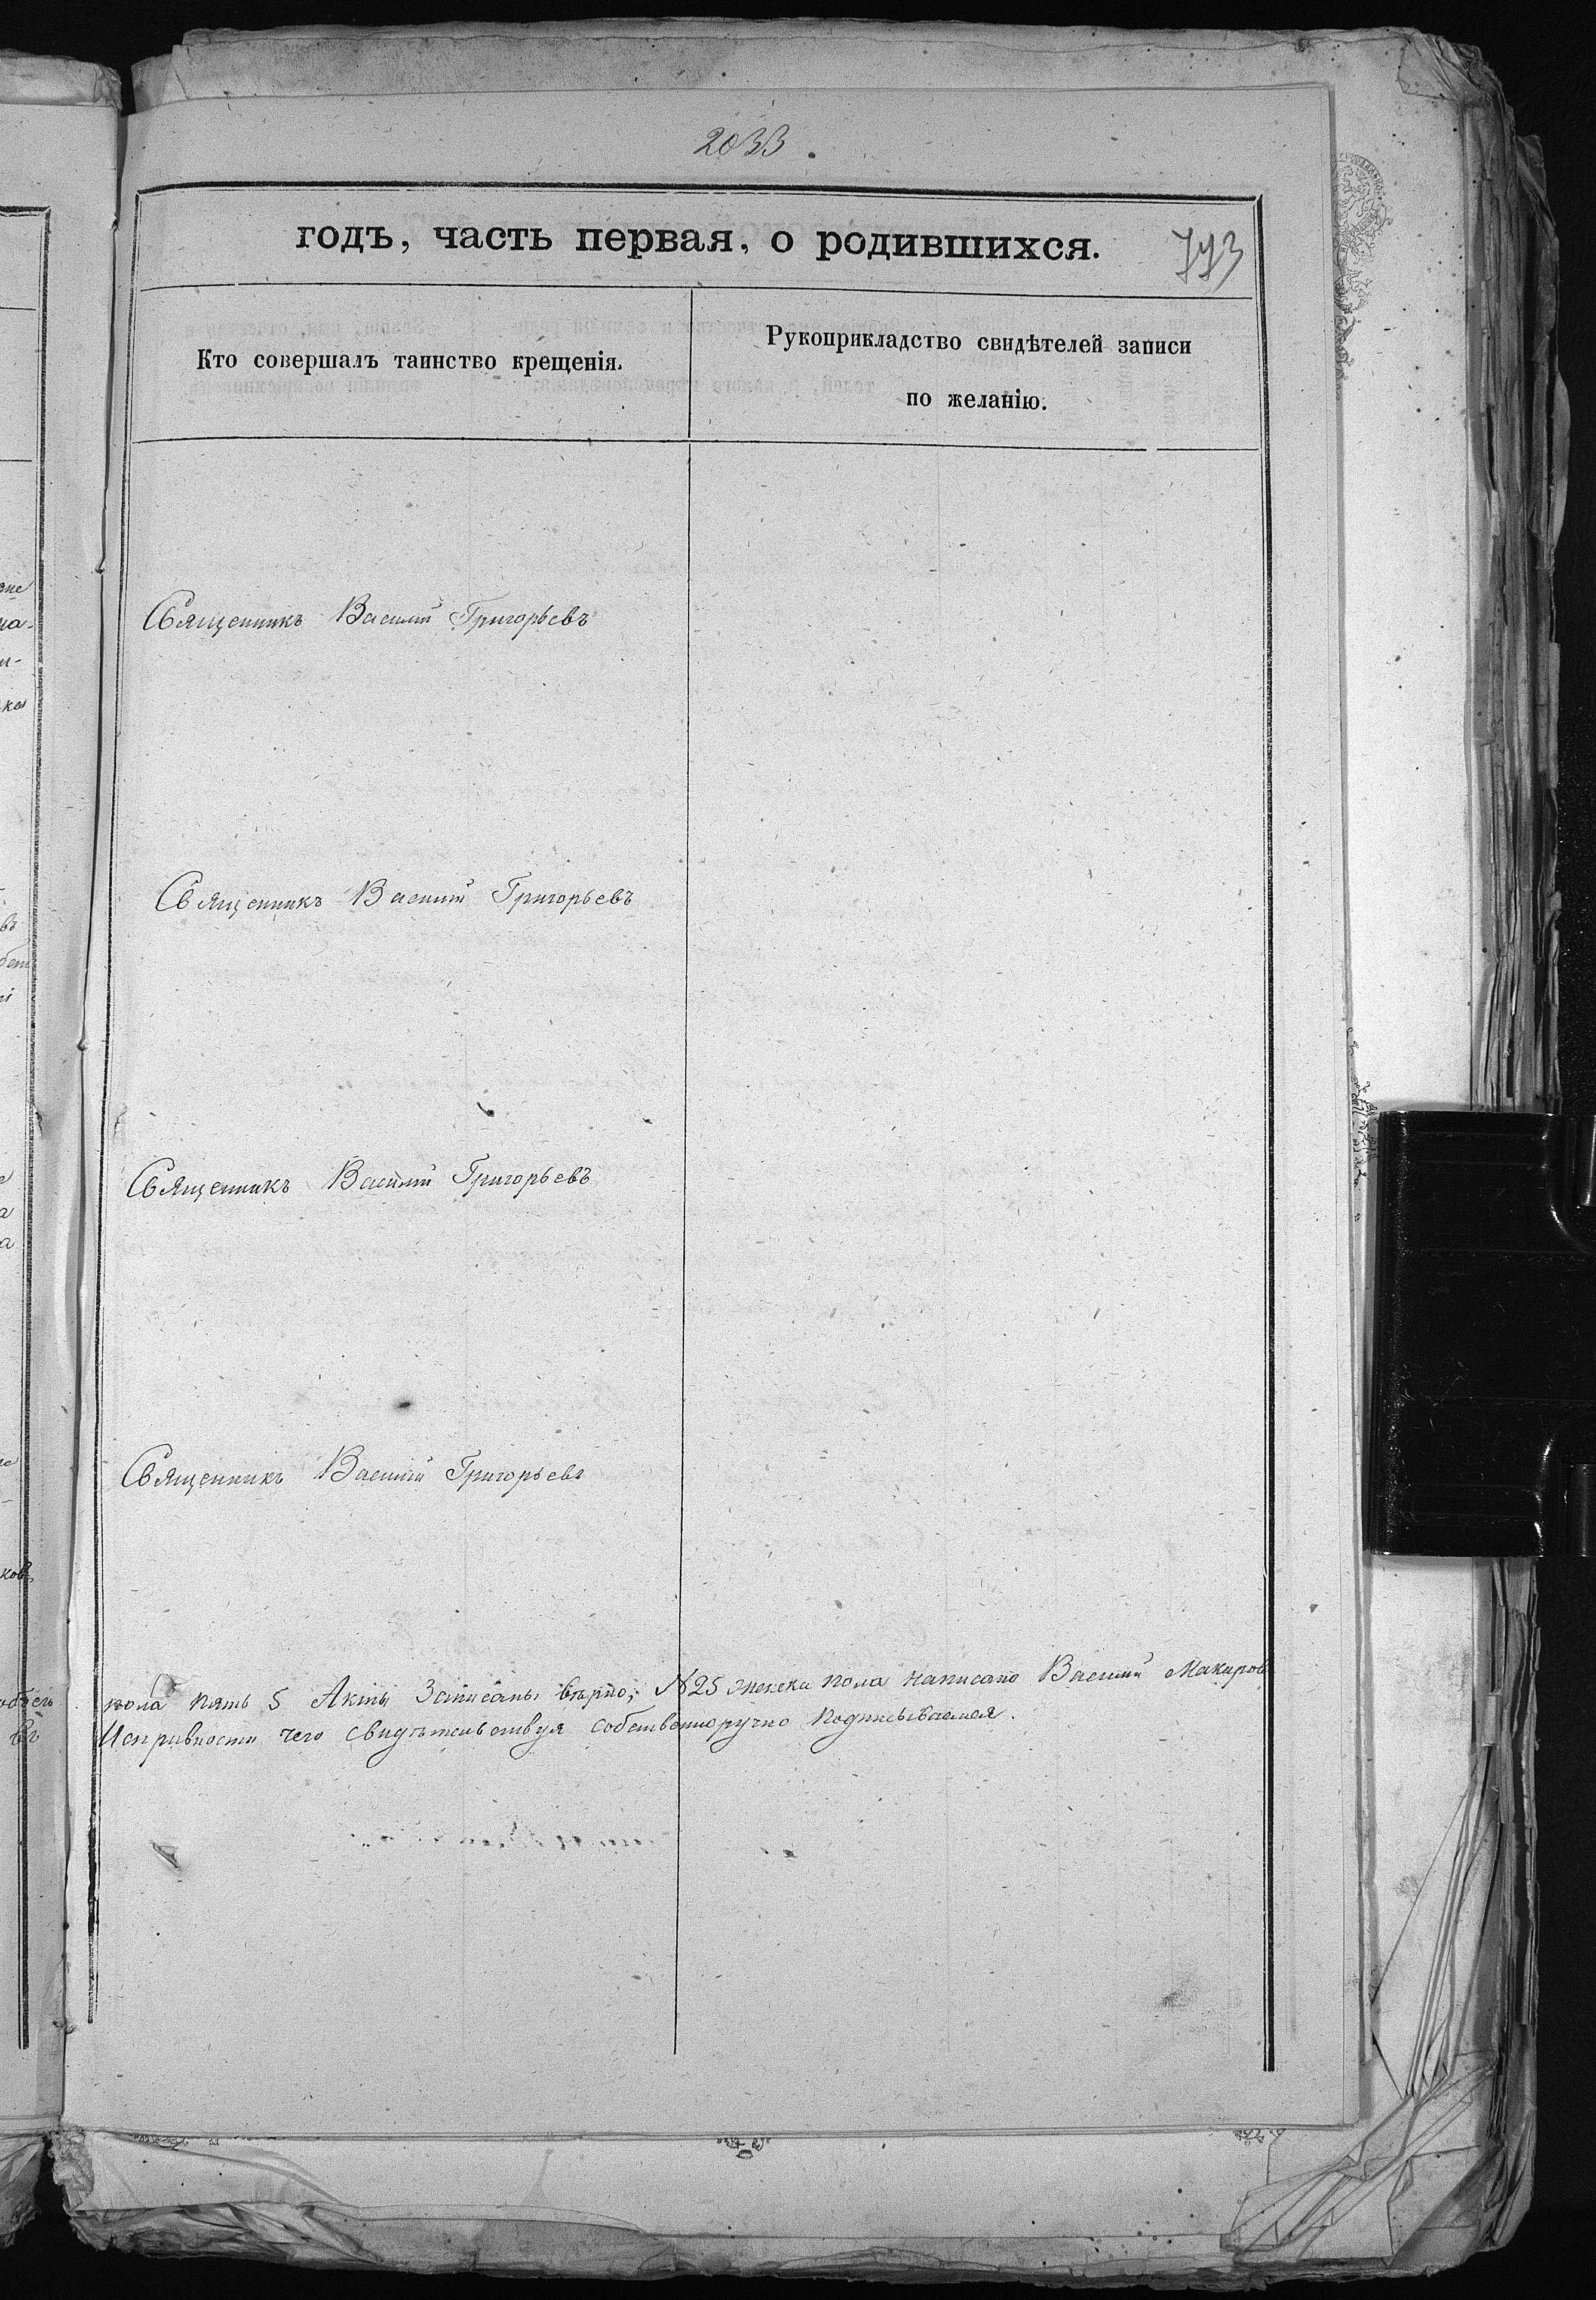 2033.
годъ, часть первая, о родившихся.
773
Кто совершалъ таинство крещенія.
Рукоприкладство свидѣтелей записи
по желанію.
Священникъ Василій Григорьевъ
Священникъ Василій Григорьевъ
Священникъ Василій Григорьевъ
Священникъ Василій Григорьевъ
пола пять 5 Акты Записаны вѣрно, №25 женска пола написано Василій Макаров
Исправности чего свидѣтельствуя собственноручно подписываемся.